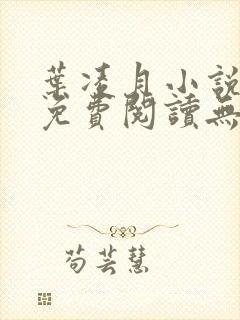 葉凌月小說
免費閱讀無
苟芸慧